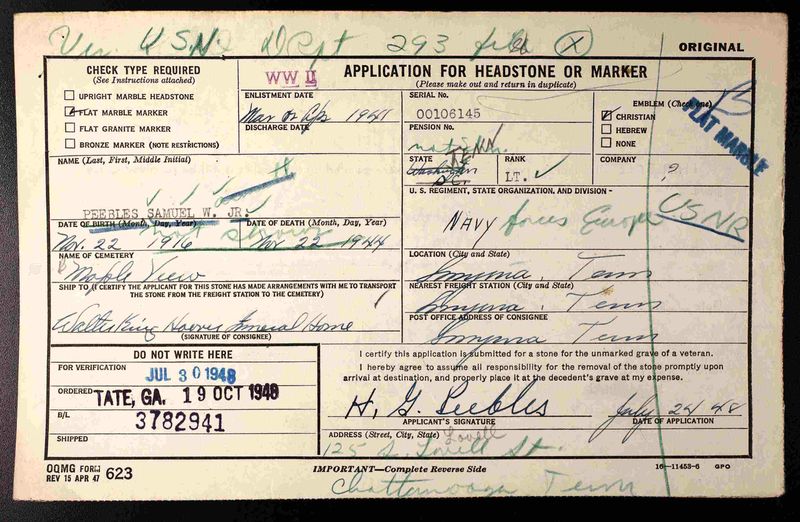 Ver. U.S.N. Dept 293 file X
ORIGINAL
CHECK TYPE REQUIRED
(See Instructions attached)
UPRIGHT MARBLE HEADSTONE
FLAT MARBLE MARKER
FLAT GRANITE MARKER
BRONZE MARKER (NOTE RESTRICTIONS)
WW II
APPLICATION FOR HEADSTONE OR MARKER
(Please make out and return in duplicate)
ENLISTMENT DATE
Mar or Apr 1941
DISCHARGE DATE
SERIAL No.
00106145
PENSION No.
EMBLEM (Check one)
CHRISTIAN
HEBREW
NONE
FLAT MARBLE
NAME (Last, First, Middle Initial)
PEEBLES SAMUEL W. JR.
STATE
TENN
Washington
D.C.
RANK
LT.
COMPANY
?
U. S. REGIMENT, STATE ORGANIZATION, AND DIVISION
NAVY forces Europe USNR
DATE OF BIRTH (Month, Day, Year)
Nov. 22 1916
DATE OF DEATH (Month, Day, Year)
Nov 22 1944
NAME OF CEMETERY
Maple View
LOCATION (City and State)
Smyrna, Tenn
SHIP TO (I CERTIFY THE APPLICANT FOR THIS STONE HAS MADE ARRANGEMENTS WITH ME TO TRANSPORT
THE STONE FROM THE FREIGHT STATION TO THE CEMETERY)
Walter King Hoover Funeral Home
(SIGNATURE OF CONSIGNEE)
NEAREST FREIGHT STATION (City and State)
Smyrna, Tenn
POST OFFICE ADDRESS OF CONSIGNEE
Smyrna Tenn
DO NOT WRITE HERE
FOR VERIFICATION
JUL 30 1948
ORDERED
TATE, GA. 19 OCT 1948
B/L
3782941
SHIPPED
I certify this application is submitted for a stone for the unmarked grave of a veteran.
I hereby agree to assume all responsibility for the removal of the stone promptly upon
arrival at destination, and properly place it at the decedent's grave at my expense.
H. G. Peebles
July 24 48
APPLICANT'S SIGNATURE
DATE OF APPLICATION
ADDRESS (Street, City, State)
Lovell
125 S. Lovell St.
Chattanooga Tenn
OQMG FORM
REV 15 APR 47 623
IMPORTANT—Complete Reverse Side
16—11453-6 GPO